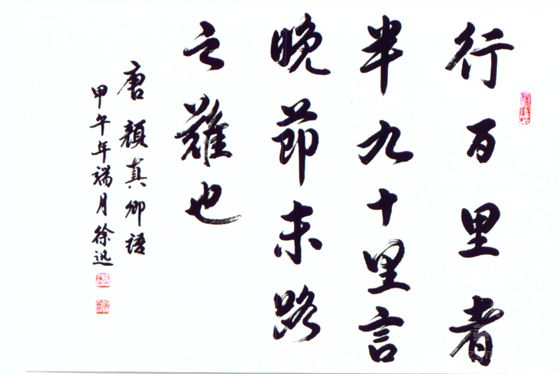 行百里者
半九十里言
晚節末路
之難也
唐顏真卿語
甲午年端月徐迅